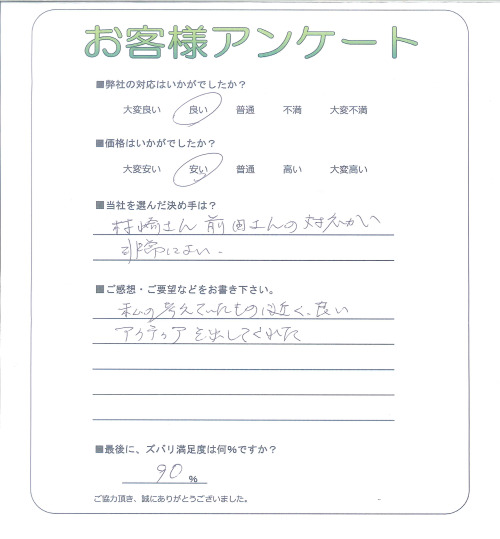 お客様アンケート
■弊社の対応はいかがでしたか？
大変良い 良い 普通 不満 大変不満
■価格はいかがでしたか？
大変安い 安い 普通 高い 大変高い
■当社を選んだ決め手は？
村崎さん 前田さんの対応がいい
非常によい.
■ご感想・ご要望などをお書き下さい。
私の考えていたもの
アイディアを出してくれた
■最後に、ズバリ満足度は何%ですか？
90%
ご協力頂き、誠にありがとうございました。